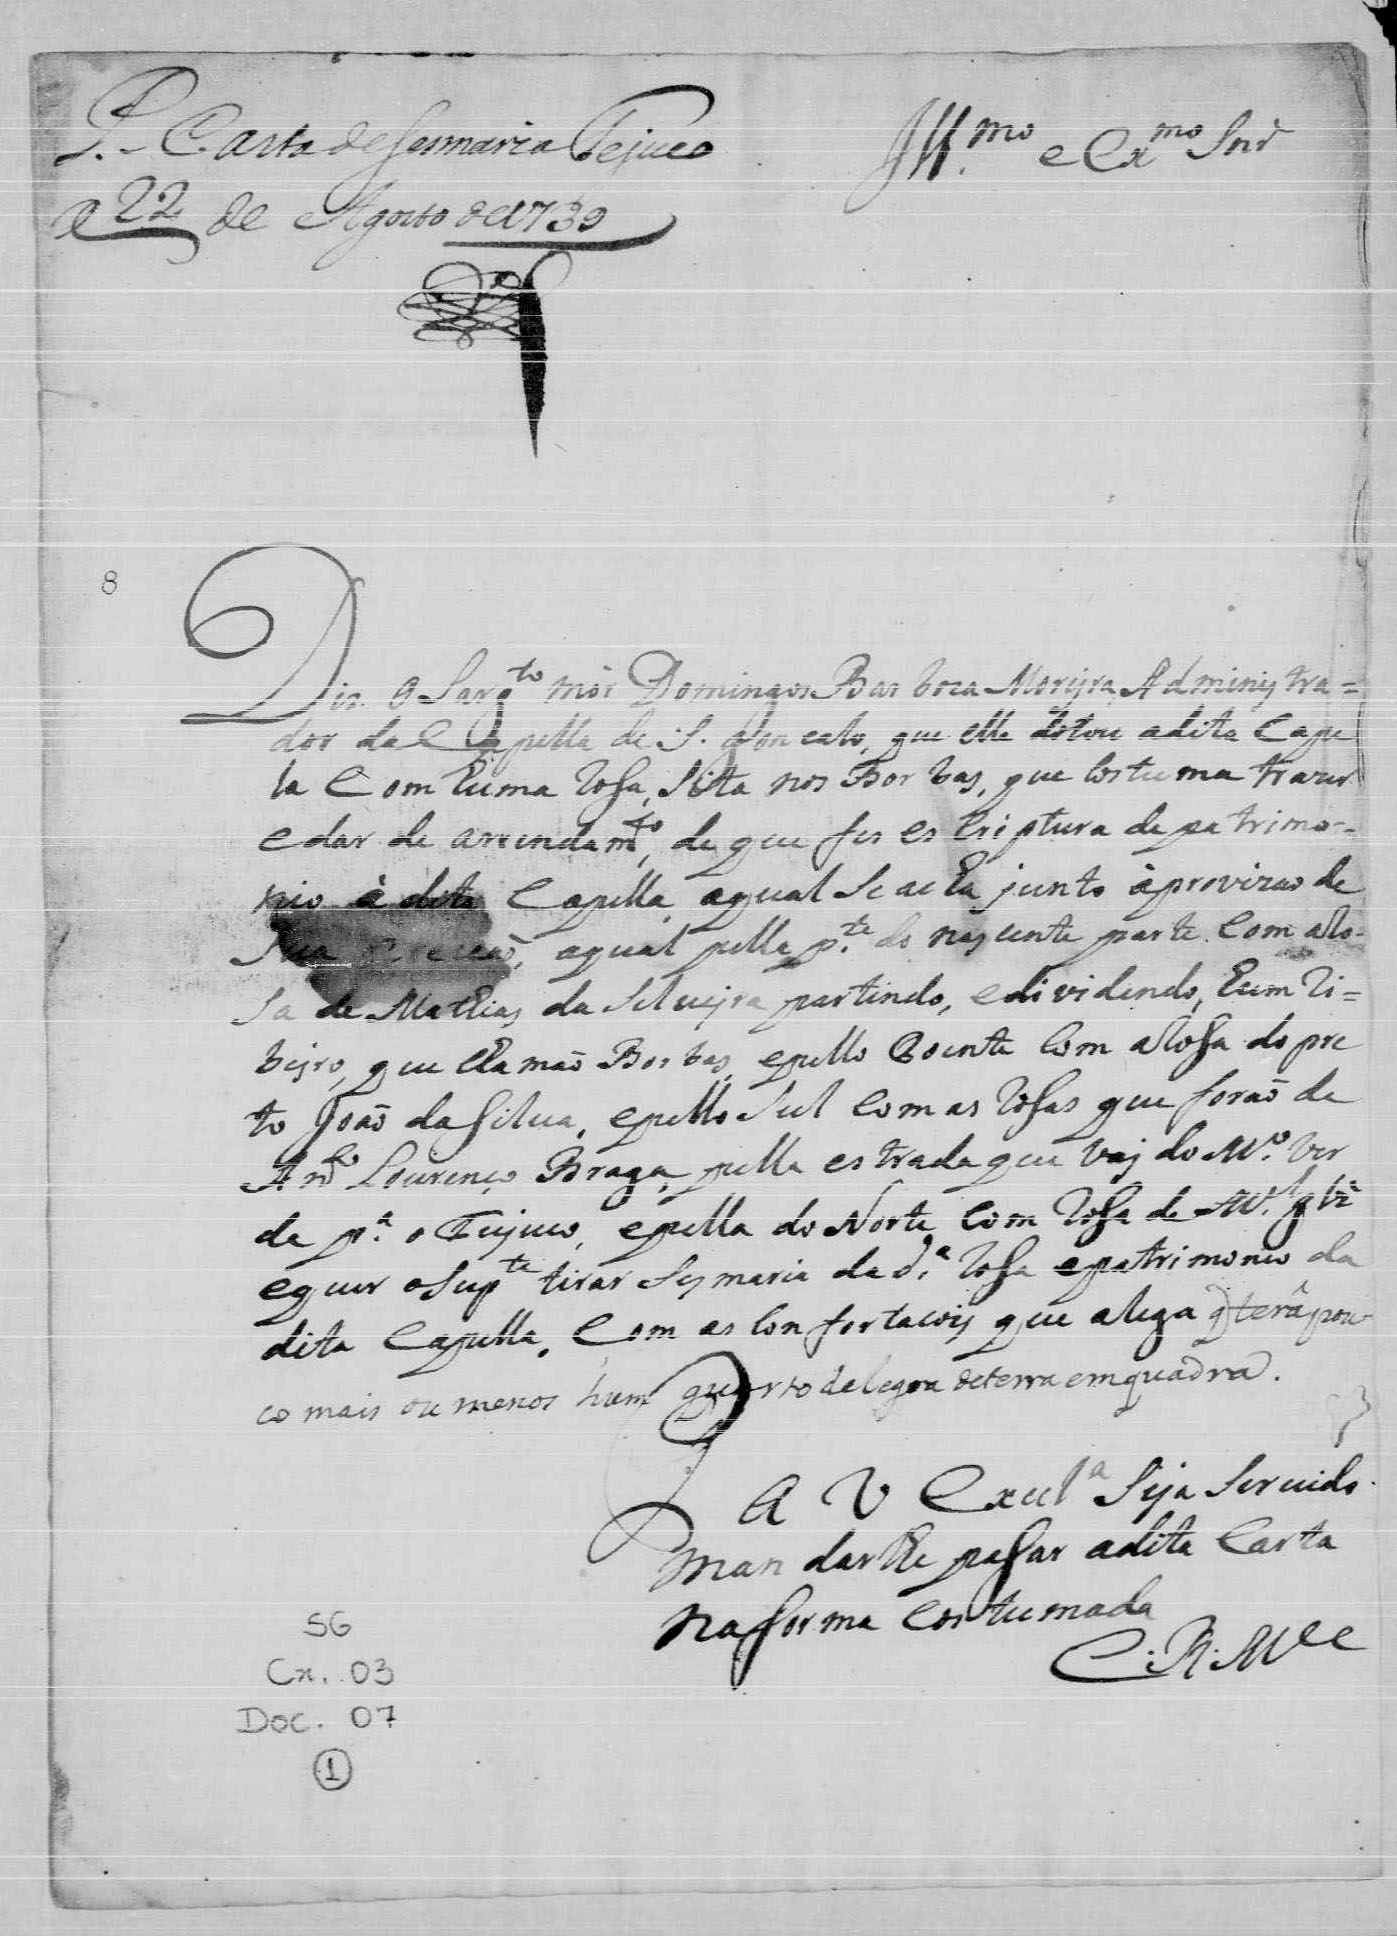 P. Carta de Sesmaria Tejuco
a 22 de Agosto de 1739
Ill.mo e Ex.mo Snr
8
Diz o Sarg.to mór Domingos Barboza Moreyra Administra=
dor da Capella de S. Goncalo, que elle dotou adita Cape
la Com huma Rossa, Sita nos Borbas, que Costuma trazer
e dar de arrendam.to, de que fes escriptura de patrimo-
nio á dita Capella, aqual Se acha junto áprovizao de
Sua Erecçaõ, aqual pella p.te do nascente parte Com aRo-
sa de Mathias da Silueyra partindo, edividindo, hum Ri=
beyro, que chamaõ Borbas, epello Poente Com aRossa do pre
to Joaõ da Silua, epello Sul Com as Rossas que foraõ de
An.to Lourenço Braga, pella estrada que vay do M.o Ver
de p.a o Tejuco, epella do Norte Com Rossa de M.el
equer oSup.te tirar Sesmaria da d.a Rossa epatrimonio da
dita Capella, Com as Confortacois que alega q terâ pou-
co mais ou menos hum quarto delegoa deterra emquadra.
P
A V Excel.a Seja Seruido
mandarlhe passar adita Carta
naforma Costumada
E.R.M.ce
SG
Cx. 03
Doc. 07
1